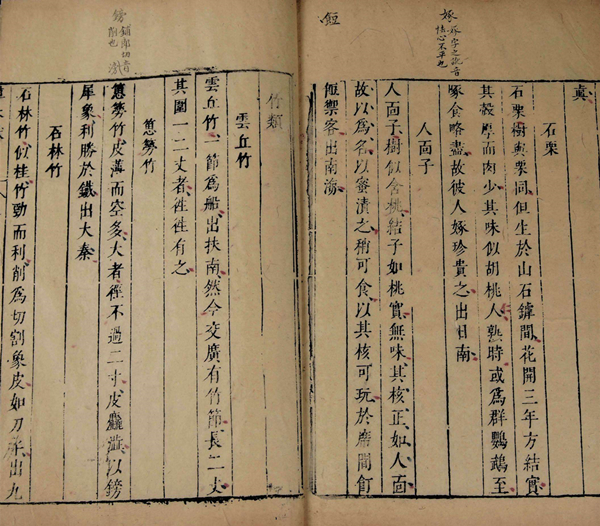 石栗
石栗樹與栗同但生於山石罅間花開三年方結實
其殼厚而肉少其味似胡桃人熟時或爲群鸚鵡至
啄食略盡故彼人嫁珍貴之出日南
人面子
人面子樹似含桃結子如桃實無味其核正如人面
故以爲名以蜜漬之稍可食以其核可玩於席間飣
餖禦客出南海
竹類
雲丘竹
雲丘竹一節爲船出扶南然今交廣有竹節長二丈
其圍一二丈者往往有之
簩竹
簩竹皮薄而空多大者徑不過二寸皮麤澁以鎊
犀象利勝於鐵出大秦
石林竹
石林竹似桂竹勁而利削爲切割象皮如刀出九